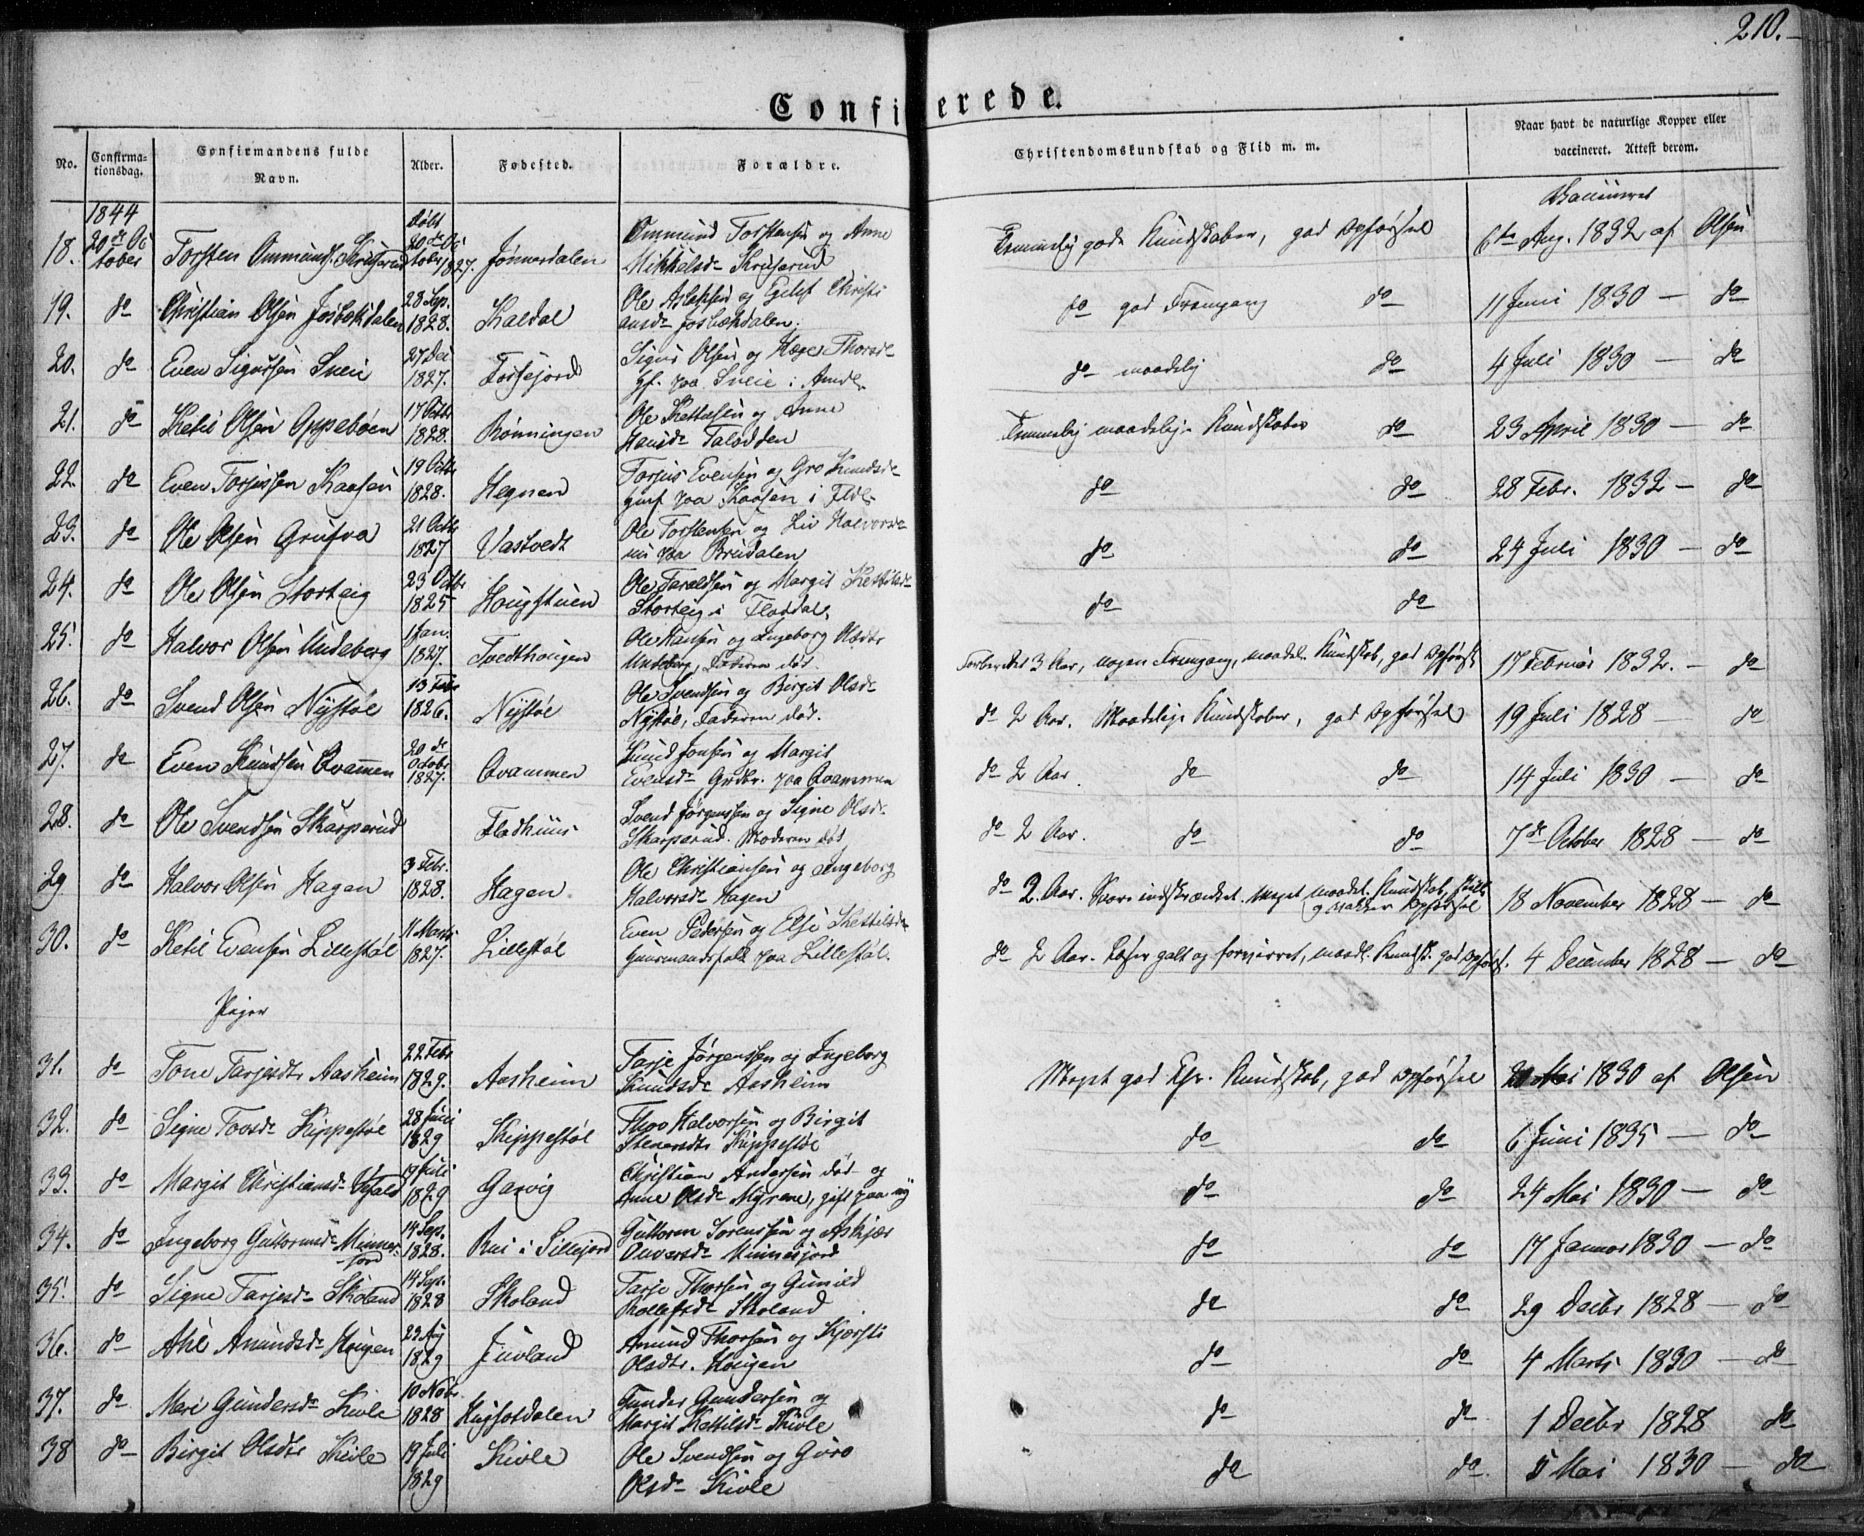 210.
Confirmerede.
No.
Confirmationsdag.
Confirmandens fulde Navn.
Alder.
Fødested.
Forældre.
Christendomskundskab og Flid m. m.
Naar havt de naturlige Kopper eller vaccineret. Attest derom.
1844 døbt Vaccineret
18. 20de October Torsten Ommunds. 20de October 1827. Jønnerdalen Ommund Torstensen og Anne Mikkelsd. Temmelig gode Kundskaber, god Opførsel 6te Aug. 1832 af Olsen
19. do Christian Olsen Josbækdalen 28 Sep. 1828. Kaldal Ole Aslaksen og Eilef Christiansd. Josbækdalen. do god Fremgang do 11 Juni 1830 — do
20. do Even Sigursen Sneie 27 Dec 1827. Sigur Olsen og Thorsd. Gf. paa Sneie i do maadelig do 4 Juli 1830 — do
21. do Ketil Olsen Oppeboen 17 Octbr 1828. Rønningen Ole Kettilsen og Anne Hansd. Talodden Temmelig maadelige Kundskaber do 23 April 1830 — do
22. do Even Torjussen Kaasen 19 Octbr 1828. Hegnen Torjus Evensen og Gro Knudsd. paa Kaasen i do do 28 Febr. 1832 — do
23. do Ole Olsen Grufva 21 Octbr 1827 Vastvedt Ole Torstensen og Liv Halvorsd. nu paa Brudalen do do 24 Juli 1830 — do
24. do Ole Olsen Storteig 23 Octbr 1825 Hougstuen Ole Taraldsen og Margit Kettilsd. Storteig i Flatdal. do do
25. do Halvor Olsen Undeberg 1 Jan. 1827. Tvedthougen Ole Hansen og Ingeborg Olsdtr Undeberg, Faderen død. Forberedet 3 Aar, nogen Fremgang, maadel. Kundskab, god Opførsel 17 Februar 1832. — do
26. do Svend Olsen Nystøl 13 Febr 1826. Nystøl Ole Svendsen og Birgit Olsd. Nystøl, Faderen død. do 2 Aar. Maadelige Kundskaber, god Opførsel 19 Juli 1828 — do
27. do Even Knudsen Qvammen 20de October 1827. Qvammen Knud Jonsen og Margit Evensd. Grdbr. paa Qvammen do 2 Aar. do do 14 Juli 1830 — do
28. do Ole Svendsen Skarperud Fladhuus Svend Jørgensen og Signe Olsd. Skarperud. Moderen død do 2 Aar. do do 7de October 1828 — do
29 do Halvor Olsen Hagen 3 Febr. 1828. Hagen Ole Christiansen og Ingeborg Halvorsd. Hagen do 2 Aar. Svare indskrænket. Meget maadel. Kundskab, og vakker Opførsel 18 November 1828 — do
30. do Ketil Evensen Lillestøl 11 Marts 1827. Lillestøl Even Pedersen og Else Kettilsd. Huusmandsfolk paa Lillestøl. do 2 Aar. Læser galt og forvirret, maadl. Kundsk. god Opførsl. 4 December 1828 — do
Piger
31. do Tone Tarjesdtr Aasheim 22 Febr 1829. Aasheim Tarje Jørgenssen og Ingeborg Knudsd. Aasheim Meget god Chr. Kundskab, god Opførsel Mai 1830 af Olsen
32. do Signe Tovsd. Kippestøl 28 Juni 1829 Skippestøl Thov Halvorsen og Birgit Kippestøl do do 6 Juni 1835 — do
33. do Margit Christiansd. 19 Juli 1829 Garvig Christian Andersen død og Anne Olsd. Myrane, gift paa ny do do 24 Mai 1830 — do
34. do Ingeborg Guttormsd. Minnesjord 14 Sep. 1828. Rui i Sillejord Guttorm Sorenssen og Askjær Onversd. Minnesjord do do 17 Januar 1830 — do
35. do Signe Tarjesd. Skoland 14 Sep. 1828 Skoland Tarje Thorsen og Gunild Rollefsd. Skoland do do 29 Decbr 1828 — do
36. do Amundsd. Hougen 23 Aug 1829 Juvland Amund Thorsen og Kjersti Olsdtr. Hougen do do 4 Marts 1830 — do
37. do Mari Gundersd. Kivle 10 Nov. 1828 Gunder Gundersen og Margit Kettilsd. Kivle do do 1 Decbr 1828 do
38 do Birgit Olsdtr Kivle 19 Juli 1829 Kivle Ole Svendsen og Guro Olsd. Kivle do do 5 Mai 1830 — do